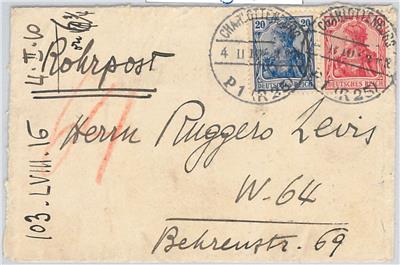 Rohrpost
Herrn Ruggero Levis
W-64
Behrenstr. 69
4.II.10
103.LVIII.16
CHARLOTTENBURG
4 11
P 1 (R 25)
20 20
DEUTSCHES REICH
CHARLOTTENBURG
(R 25)
DEUTSCHES REICH